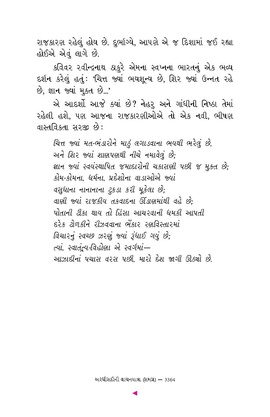 રાજકારણ રહેલું હોય છે. દુર્ભાગ્યે, આપણે એ જ દિશામાં જઈ રહ્યા
હોઈએ એવું લાગે છે.
કવિવર રવીન્દ્રનાથ ઠાકુરે એમના સ્વપ્નના ભારતનું એક ભવ્ય
દર્શન કરેલું હતું: ‘ચિત્ત જ્યાં ભયશૂન્ય છે, શિર જ્યાં ઉન્નત રહે
છે, જ્ઞાન જ્યાં મુક્ત છે...’
એ આદર્શો આજે ક્યાં છે? નેહરુ અને ગાંધીની નિષ્ઠા તેમાં
રહેલી હશે, પણ આજના રાજકારણીઓએ તો એક નવી, ભીષણ
વાસ્તવિકતા સરજી છે:
ચિત્ત જ્યાં મત-ભંડારોને માઠું લગાડવાના ભયથી ભરેલું છે.
અને શિર જ્યાં શાણપણથી નીચે નમાવેલું છે;
જ્ઞાન જ્યાં સ્વયંસ્થાપિત જમાદારોની ચકાસણી પછી જ મુક્ત છે;
કોમ-કોમના, ધર્મના, પ્રદેશોના વાડાઓએ જ્યાં
વસુધાના નાનાનાના ટુકડા કરી મૂકેલા છે;
વાણી જ્યાં રાજકીય તકવાદના ઊંડાણમાંથી વહે છે;
પોતાની ટીકા થાય તો હિંસા આચરવાની ધમકી આપતી
દરેક ટોળકીને રીઝવવાના ભેંકાર રણવિસ્તારમાં
વિચારનું સ્વચ્છ ઝરણું જ્યાં રૂંધાઈ ગયું છે;
ત્યાં, સ્વાતંત્ર્ય-વિહોણા એ સ્વર્ગમાં—
આઝાદીનાં પચાસ વરસ પછી, મારો દેશ જાગી ઊઠ્યો છે.
અરધીસદીની વાચનયાત્રા (૪માંથી) — 3364